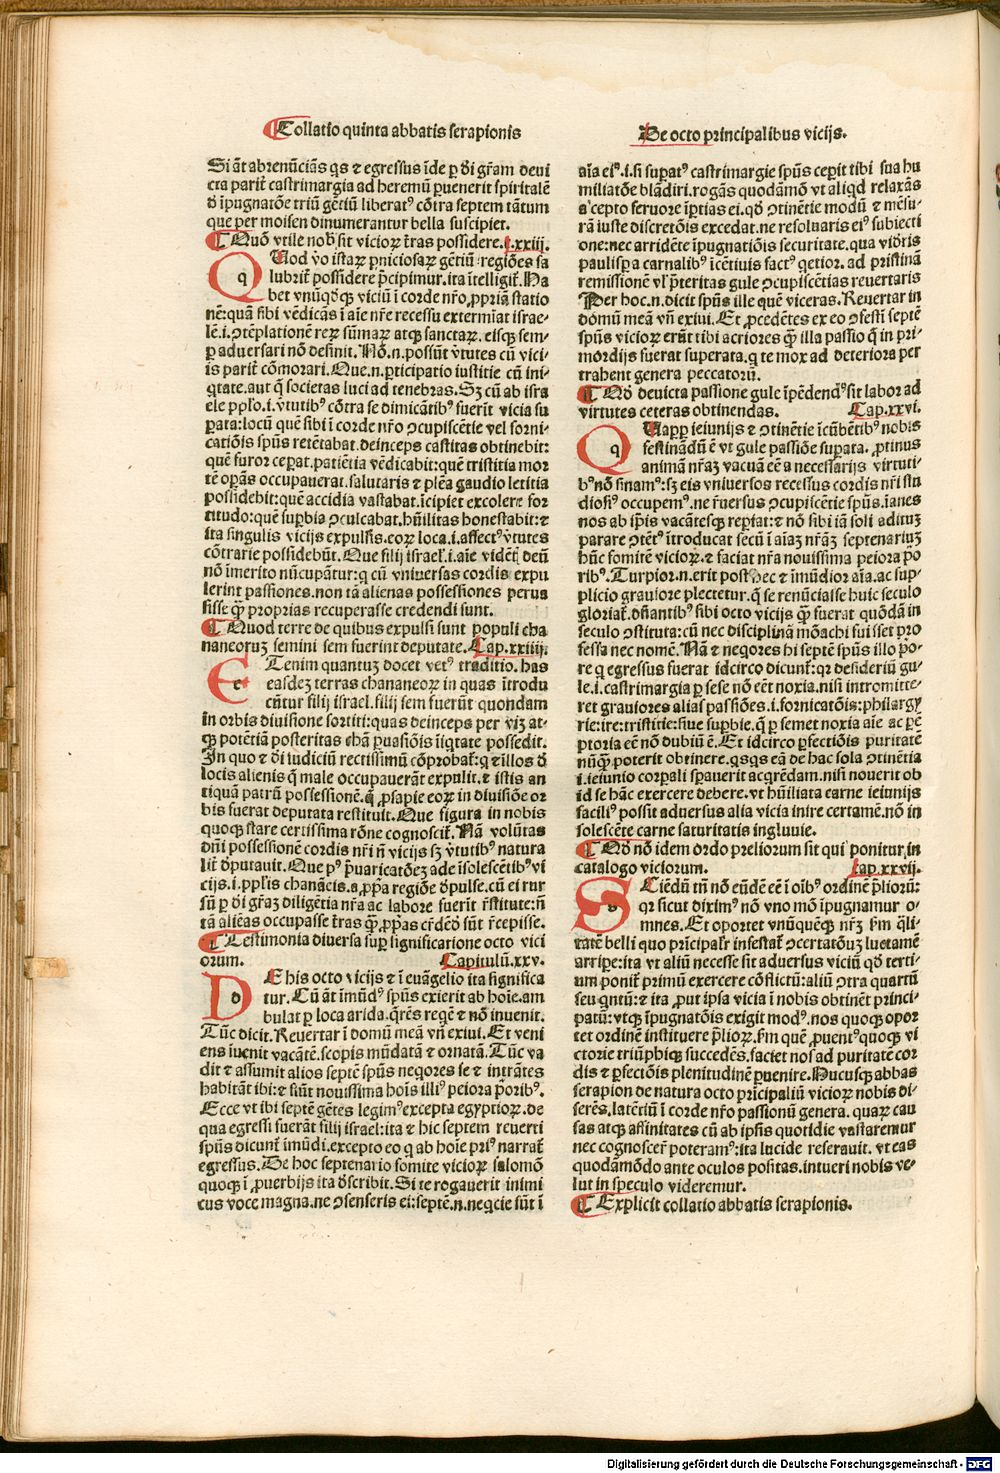 Collatio quinta abbatis serapionis
De octo principalibus vicijs.
Si āt abrenūciās qs ⁊ egressus īde ꝑ di grām deui
cta parit̄ castrimargia ad heremū ꝑuenerit spiritalē
ō īpugnatōe triū gētiū liberatꝰ cōtra septem tātum
que per moisen dinumerantur bella suscipiet.
¶ Quō vtile nob̄ sit vicioꝝ t̄ras possidere. C.xxiij.
Quod v̄o istaꝝ ꝑniciosaꝝ gētiū regiōes sa
lubrit̄ possidere p̄cipimur. ita ītelligit̄. Ha
bet vnūqdqꝫ viciū ī corde nr̄o ꝓpriā statio
nē: quā sibi vēdicās ī aīe nr̄e recessu extermiat israe-
lē. i. ꝯtēplationē reꝝ sūmaꝝ atqꝫ sanctaꝝ. eisqꝫ sem-
ꝑ aduersari nō desinit. Nō. n. possūt v̄tutes cū vici-
is parit̄ cōmorari. Que. n. ꝑticipatio iustitie cū ini-
qtate. aut q̄ societas luci ad tenebras. Sꝫ cū ab isra
ele pplo. i. v̄tutibꝰ cōtra se dimicātibꝰ fuerīt vicia su
ꝑata: locū quē sibi ī corde nr̄o ꝯcupiscētie vel forni-
catiōis spūs retētabat. deinceps castitas obtinebit:
quē furor ceꝑat. patiētia vēdicabit: quē tristitia mor
tē oꝑās occupauerat. salutaris ⁊ plēa gaudio letitia
possidebit: quē accidia vastabat. īcipiet excolere for
titudo: quē suꝑbia ꝯculcabat. hūilitas honestabit: ⁊
ita singulis vicijs expulsis. eoꝝ loca. i. affectꝰ v̄tutes
cōtrarie possidebūt. Que filij israel. i. aīe vidētis deū
nō īmerito nūcupātur: q cū vniuersas cordis expu
lerint passiones. non tā alienas possessiones perua
sisse qꝫ proprias recuperasse credendi sunt.
¶ Quod terre de quibus expulsi sunt populi cha
naneoruꝫ semini sem fuerint deputate. Cap.xxiiij.
Etenim quantuꝫ docet vetꝰ traditio. has
easdeꝫ terras chananeoꝝ in quas ītrodu
cūtur filij israel. filij sem fuerūt quondam
in orbis diuisione sortiti: quas deinceps per viꝫ at-
qꝫ potētiā posteritas chā ꝑuasiōis īiqtate possedit.
In quo ⁊ di iudiciū rectissimū cōprobat̄: q ⁊ illos ō
locis alienis q̄ male occupauerāt expulit. ⁊ istis an
tiquā patrū possessionē. q̄ ꝓsapie eoꝝ in diuisiōe or
bis fuerat deputata restituit. Que figura in nobis
quoqꝫ stare certissima rōne cognoscit̄. Nā volūtas
dn̄i possessionē cordis nr̄i n̄ vicijs sꝫ v̄tutibꝰ natura
lit̄ d̄putauit. Que pꝰ p̄uaricatōeꝫ ade īsolescētibꝰ vi
cijs. i. pplis chanāeis. a ꝓp̄a regiōe d̄pulse. cū ei rur
sū ꝑ di grāꝫ diligētia nr̄a ac labore fuerīt r̄stitute: n̄
tā aliēas occupasse t̄ras qꝫ ꝓp̄as cr̄dēde sūt r̄cepisse.
¶ Testimonia diuersa suꝑ significatione octo vici
orum. Capitulū.xxv.
De his octo vicijs ⁊ ī euāgelio ita significa
tur. Cū āt īmūdꝰ spūs exierit ab hoīe. am
bulat ꝑ loca arida. q̄rēs reqē ⁊ nō inuenit.
Tūc dicit. Reuertar ī domū meā vn̄ exiui. Et veni
ens iuenit vacātē. scopis mūdatā ⁊ ornatā. Tūc va
dit ⁊ assumit alios septē spūs neqores se ⁊ intrātes
habitāt ibi: ⁊ fiūt nouissima hoīs illiꝰ peiora p̄oribꝰ.
Ecce vt ibi septē gētes legimꝰ excepta egyptioꝝ. de
qua egressi fuerāt filij israel: ita ⁊ hic septem reuerti
spūs dicunt̄ imūdi. excepto eo q ab hoīe priꝰ narrat̄
egressus. De hoc septenario fomite vicioꝝ salomō
quoqꝫ ī ꝓuerbijs ita d̄scribit. Si te rogauerit inimi
cus voce magna. ne ꝯsenseris ei: septē. n. neqcie sūt ī
aīa eiꝰ. i. si suꝑatꝰ castrimargie spūs ceꝑit tibi sua hu
militatōe blādiri. rogās quodāmō vt aliqd relaxās
a cepto feruore īꝑtias ei. qd ꝯtinētie modū ⁊ mēsu-
rā iuste discretōis excedat. ne resoluaris eiꝰ subiecti
one: nec arridēte īpugnatiōis securitate. qua videris
paulisꝑ a carnalibꝰ īcētiuis factꝰ qetior. ad pristinā
remissionē vl p̄teritas gule ꝯcupiscētias reuertaris
Per hoc. n. dicit spūs ille quē viceras. Reuertar in
domū meā vn̄ exiui. Et ꝓcedētes ex eo ꝯfestī septē
spūs vicioꝝ erūt tibi acriores qꝫ illa passio q̄ in pri-
mordijs fuerat superata. q te mox ad deteriora per
trahent genera peccatorū.
¶ Qd deuicta passione gule īpēdendꝰ sit labor ad
virtutes ceteras obtinendas. Cap.xxvi.
Quapp̄ ieiunijs ⁊ ꝯtinētie īcūbētibꝰ nobis
festinādū ē vt gule passiōe suꝑata. ꝓtinus
animā nr̄aꝫ vacuā eē a necessarijs virtuti-
bꝰ nō sinamꝰ: sꝫ eis vniuersos recessus cordis nr̄i stu
diosiꝰ occupemꝰ. ne r̄uersus ꝯcupiscētie spūs. ianes
nos ab ip̄is vacātesqꝫ reꝑiat: ⁊ nō sibi iā soli adituꝫ
parare ꝯtētꝰ ītroducat secū ī aīaꝫ nr̄aꝫ septenariuꝫ
hūc fomitē vicioꝝ. ⁊ faciat nr̄a nouissima peiora p̄o
ribꝰ. Turpior. n. erit post hec ⁊ īmūdior aīa. ac sup-
plicio grauiore plectetur. q̄ se renūciasse huic seculo
gloriat̄. dn̄antibꝰ sibi octo vicijs qꝫ fuerat quōdā in
seculo ꝯstituta: cū nec disciplinā mōachi fuisset pro
fessa nec nomē. Nā ⁊ neqores hi septē spūs illo p̄o-
re q egressus fuerat idcirco dicunt̄: qꝛ desideriū gu-
le. i. castrimargia ꝑ sese nō eēt noxia. nisi intromitte-
ret grauiores alias passiōes. i. fornicatōis: philargy
rie: ire: tristitie: siue suꝑbie. q̄ ꝑ semet noxia aīe ac ꝑē
ptoria eē nō dubiū ē. Et idcirco ꝑfectiōis puritatē
nūqꝫ poterit obtinere. qsqs eā de hac sola ꝯtinētia
i. ieiunio corꝑali sꝑauerit acqrēdam. nisi nouerit ob
id se hāc exercere debere. vt hūiliata carne ieiunijs
faciliꝰ possit aduersus alia vicia inire certamē. nō in
solescēte carne saturitatis ingluuie.
¶ Qd nō idem ordo preliorum sit qui ponitur in
catalogo viciorum. Cap.xxvij.
Sciēdū tn̄ nō eūdē eē ī oībꝰ ordinē p̄liorū:
qꝛ sicut diximꝰ nō vno mō īpugnamur o-
mnes. Et oportet vnūquēqꝫ nr̄ꝫ ẜm q̄li
tatē belli quo prīcipalr̄ infestat̄ ꝯcertatōuꝫ luctamē
arriꝑe: ita vt aliū necesse sit aduersus viciū qd terti-
um ponit̄ primū exercere cōflictū: aliū ꝯtra quartū
seu qntū: ⁊ ita ꝓut ipsa vicia ī nobis obtinēt princi-
patū: vtqꝫ īpugnatōis exigit modꝰ. nos quoqꝫ opor
tet ordinē instituere p̄lioꝝ. ẜm quē ꝓuentꝰ quoqꝫ vi
ctorie triūphiqꝫ succedēs. faciet nos ad puritatē cor
dis ⁊ ꝑfectiōis plenitudinē ꝑuenire. Hucusqꝫ abbas
serapion de natura octo prīcipaliū vicioꝝ nobis di-
serēs. latētiū ī corde nr̄o passionū genera. quaꝝ cau
sas atqꝫ affinitates cū ab ipsis quotidie vastaremur
nec cognoscer̄ poteramꝰ: ita lucide reserauit. vt eas
quodāmōdo ante oculos positas. intueri nobis ve-
lut in speculo videremur.
¶ Explicit collatio abbatis serapionis.
Digitalisierung gefördert durch die Deutsche Forschungsgemeinschaft - DFG